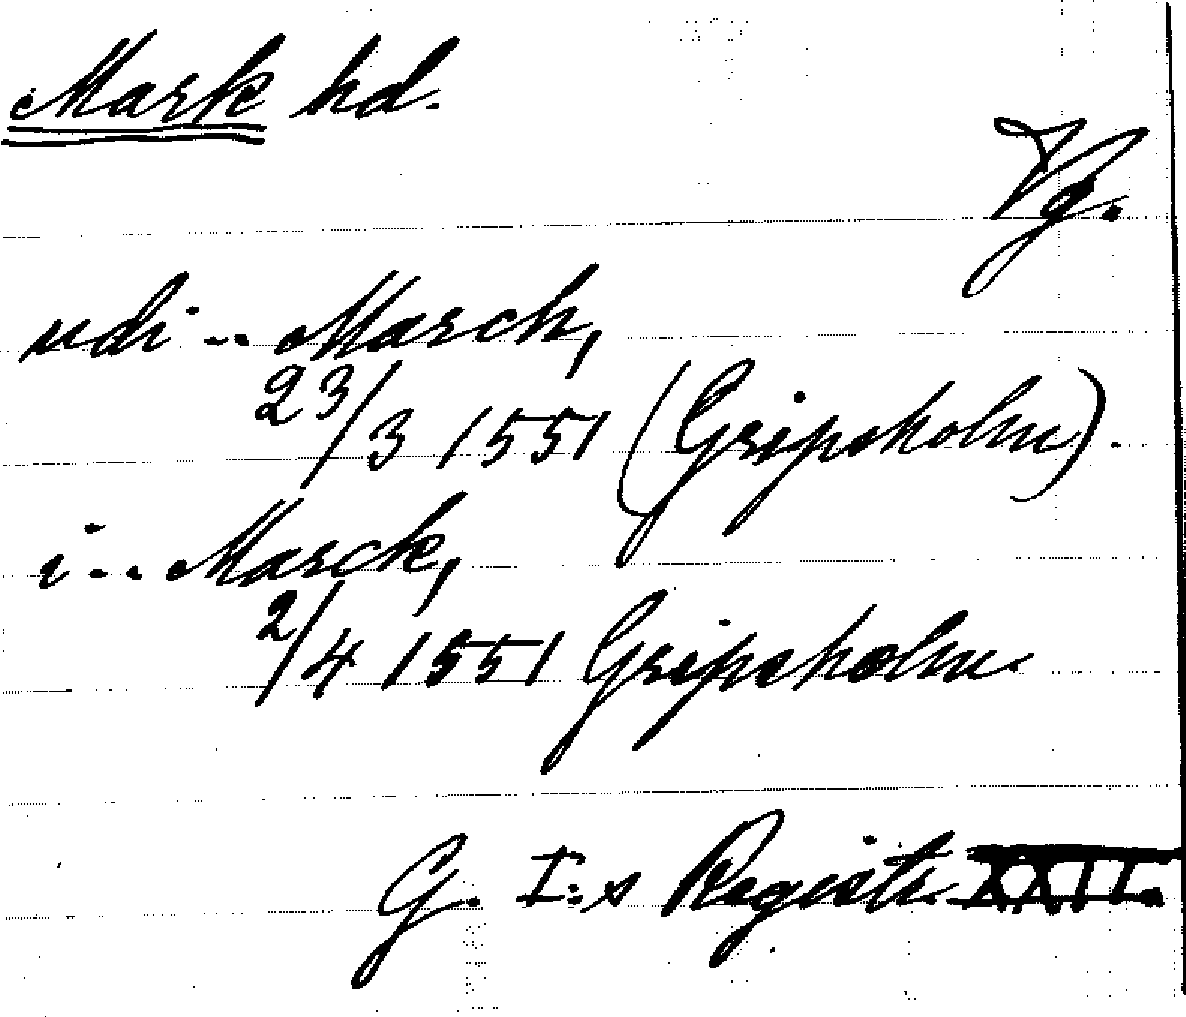 Mark hd.
Vg.
udi -- March,
23/3 1551 (Gripsholm).
i -- Marck,
2/4 1551 Gripsholm
G. I:s Registr. XXII.